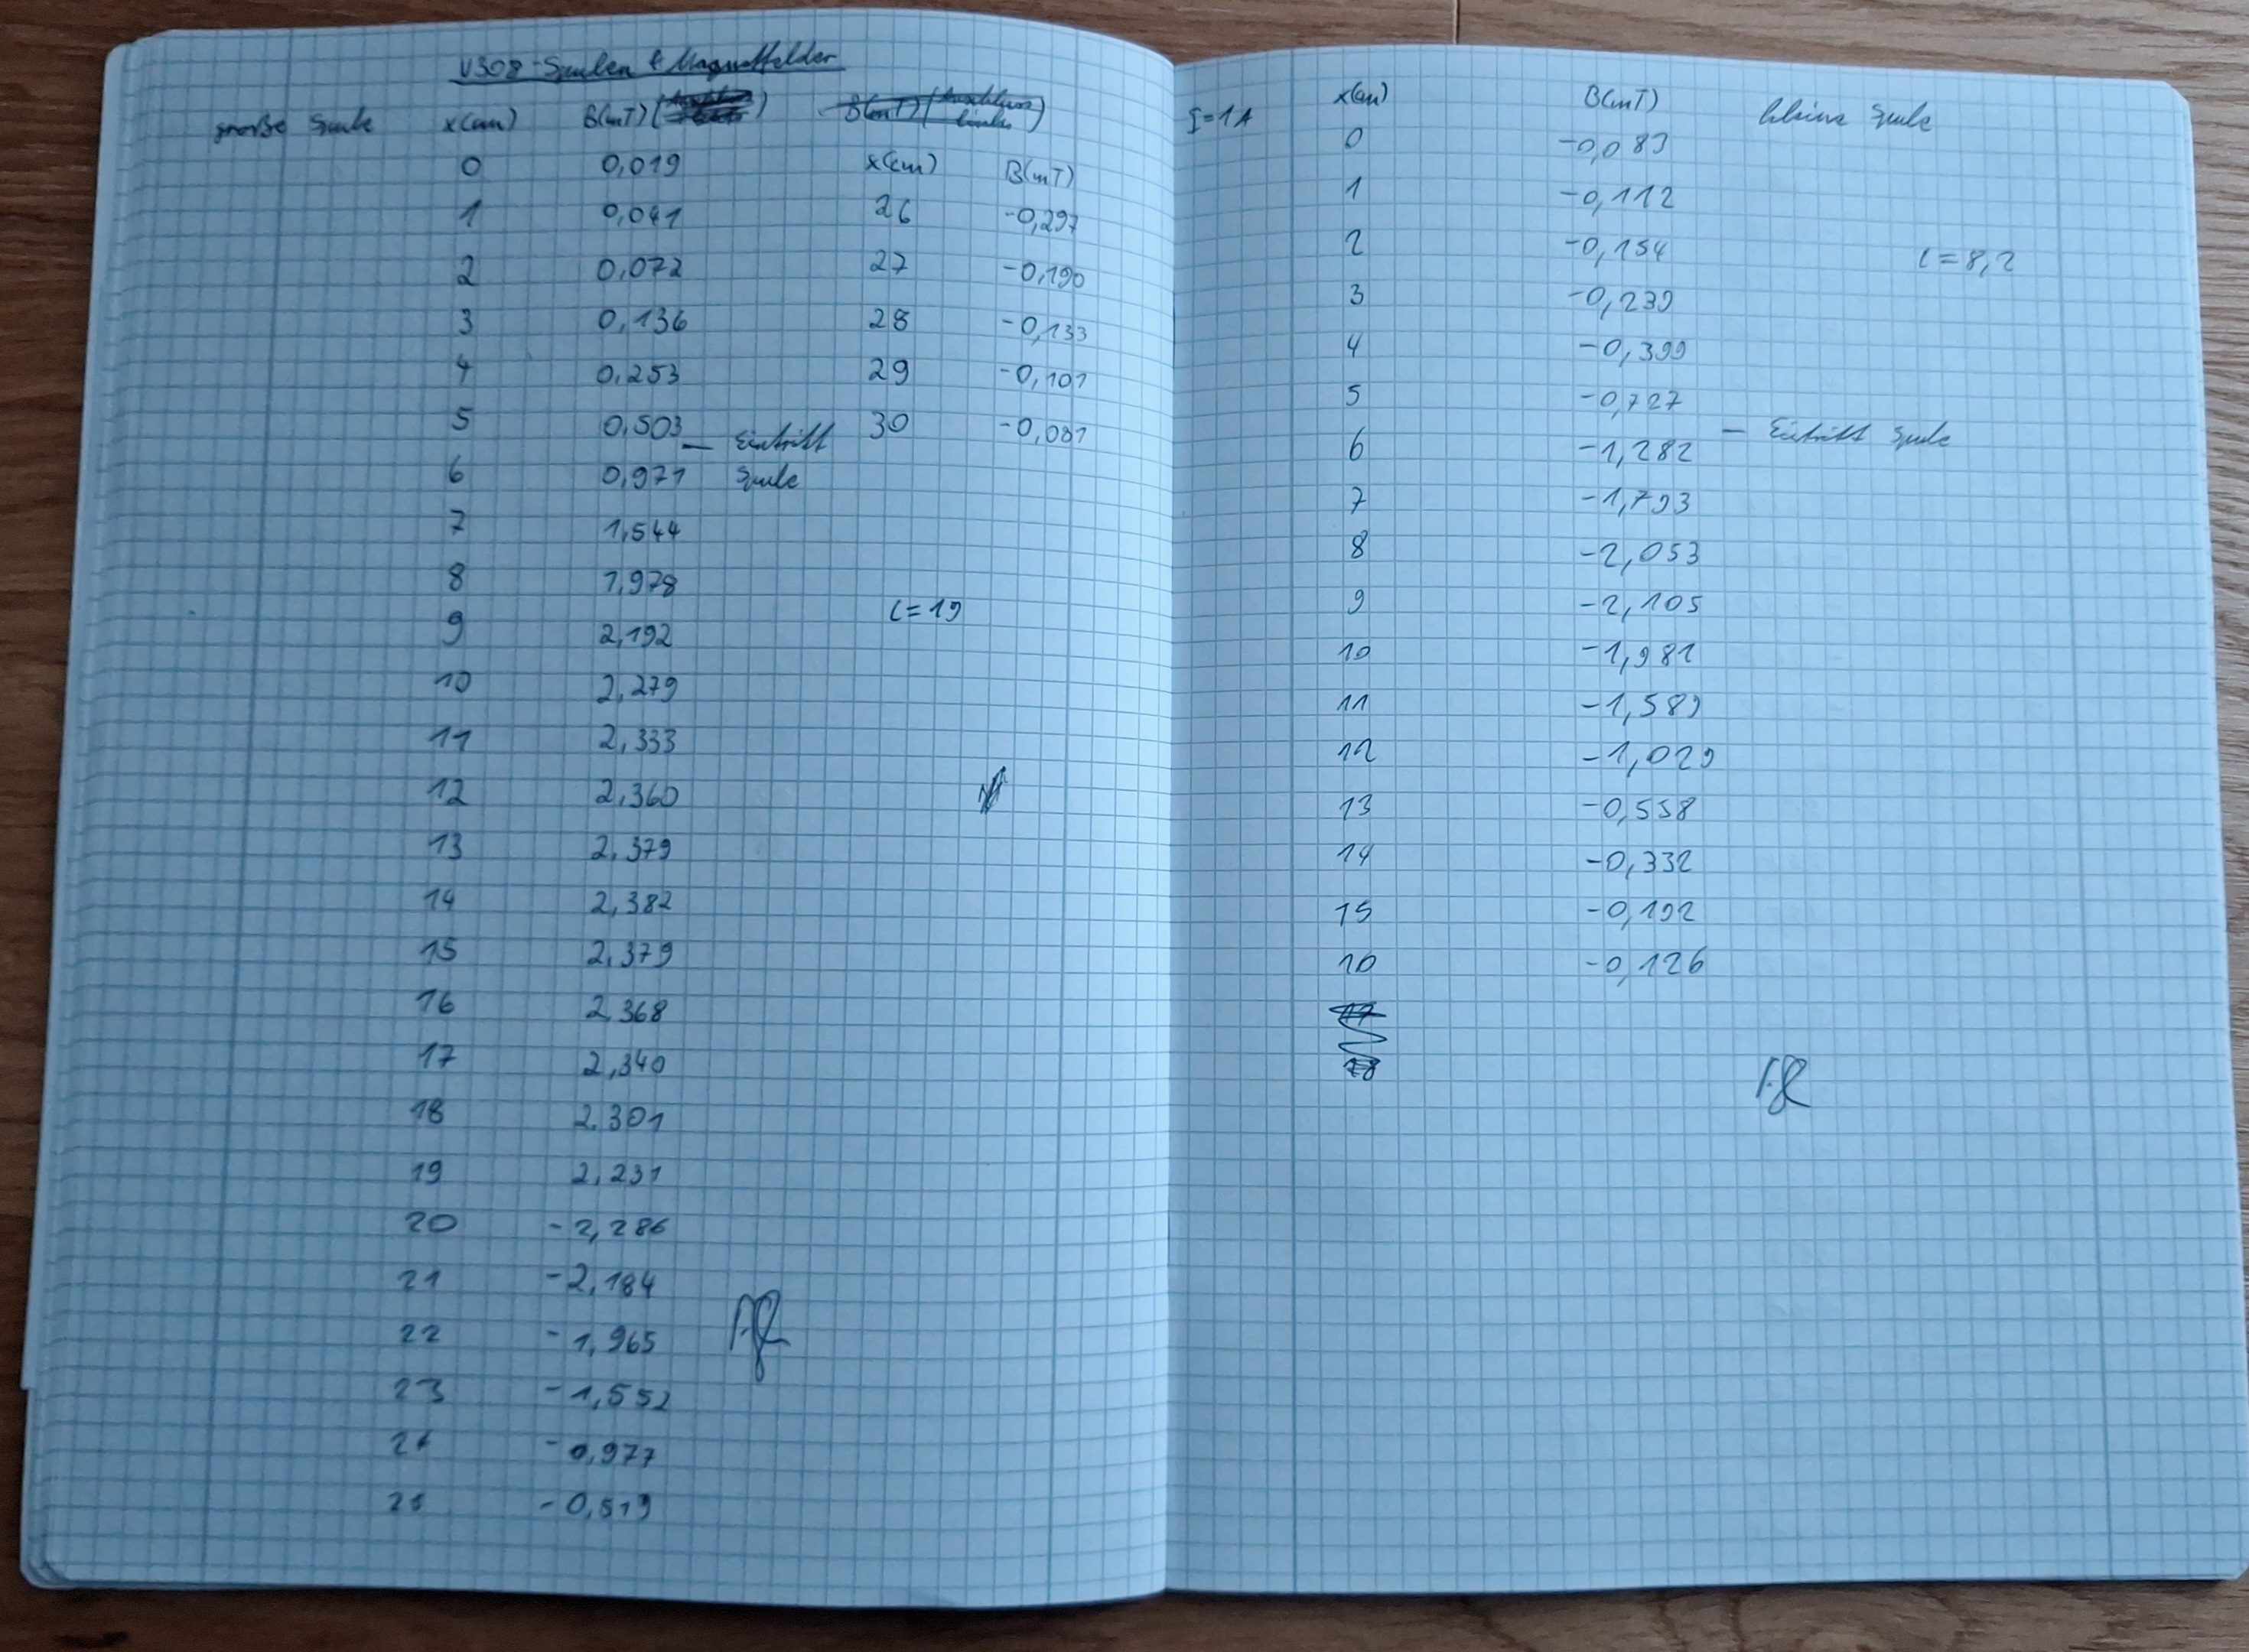 V308 - Spulen & Magnetfelder
große Spule x(cm) B(mT)
0 0,019
1 0,041
2 0,072
3 0,136
4 0,253
5 0,503
— Eintritt Spule
6 0,971
7 1,544
8 1,978
9 2,192
10 2,279
11 2,333
12 2,360
13 2,379
14 2,382
15 2,379
16 2,368
17 2,340
18 2,301
19 2,231
20 -2,286
21 -2,184
22 -1,965
23 -1,552
24 -0,977
25 -0,519
B(mT) (Anschluss links)
x(cm) B(mT)
26 -0,297
27 -0,190
28 -0,133
29 -0,101
30 -0,081
l=19
I=1A x(cm) B(mT) kleine Spule
0 -0,083
1 -0,112
2 -0,154
l=8,2
3 -0,239
4 -0,399
5 -0,727
— Eintritt Spule
6 -1,282
7 -1,793
8 -2,053
9 -2,105
10 -1,981
11 -1,589
12 -1,029
13 -0,558
14 -0,332
15 -0,192
16 -0,126
17
18